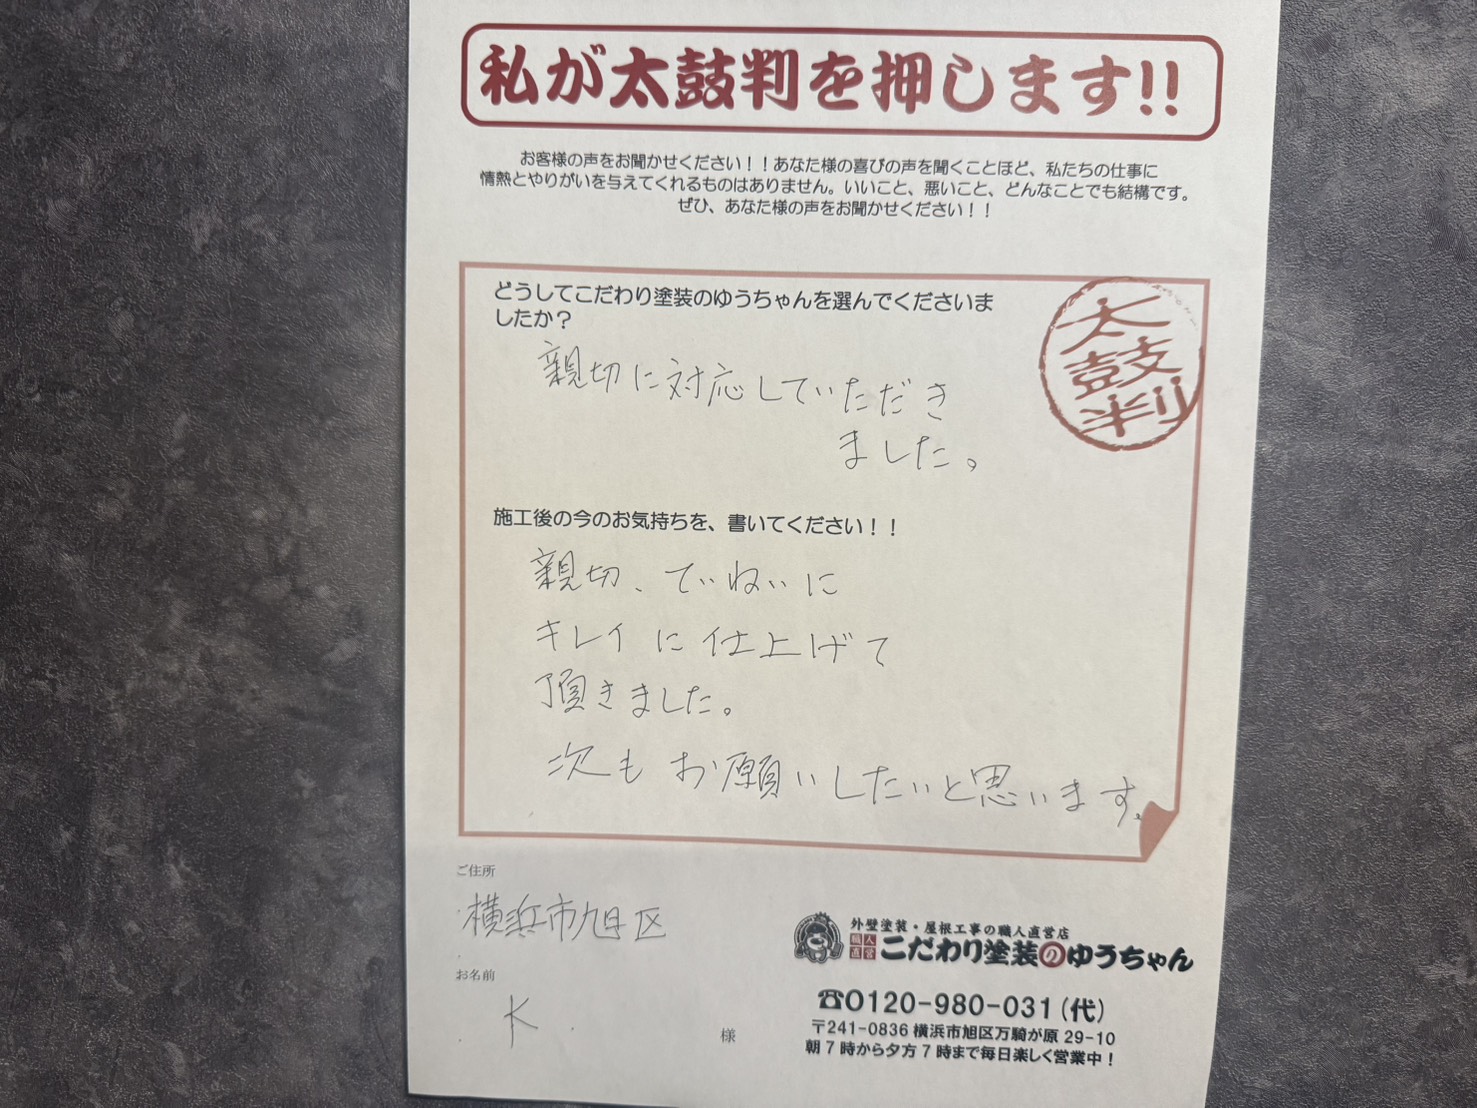 私が太鼓判を押します!!
お客様の声をお聞かせください！！あなた様の喜びの声を聞くことほど、私たちの仕事に
情熱とやりがいを与えてくれるものはありません。いいこと、悪いこと、どんなことでも結構です。
ぜひ、あなた様の声をお聞かせください！！
どうしてこだわり塗装のゆうちゃんを選んでくださいま
したか？
太鼓判
親切に対応していただき
ました。
施工後の今のお気持ちを、書いてください！！
親切、ていねいに
キレイに仕上げて
頂きました。
次もお願いしたいと思います。
ご住所
横浜市旭区
お名前
K
様
外壁塗装・屋根工事の職人直営店
職人直営 こだわり塗装のゆうちゃん
☎0120-980-031(代)
〒241-0836 横浜市旭区万騎が原 29-10
朝7時から夕方7時まで毎日楽しく営業中！